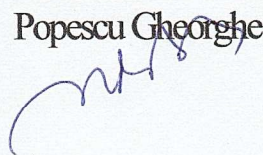 Popescu Gheorghe